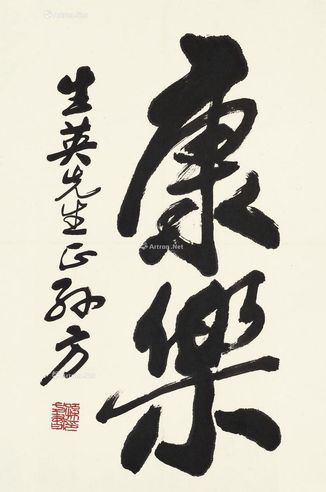 康樂
生英先生正孙方
Artron.Net